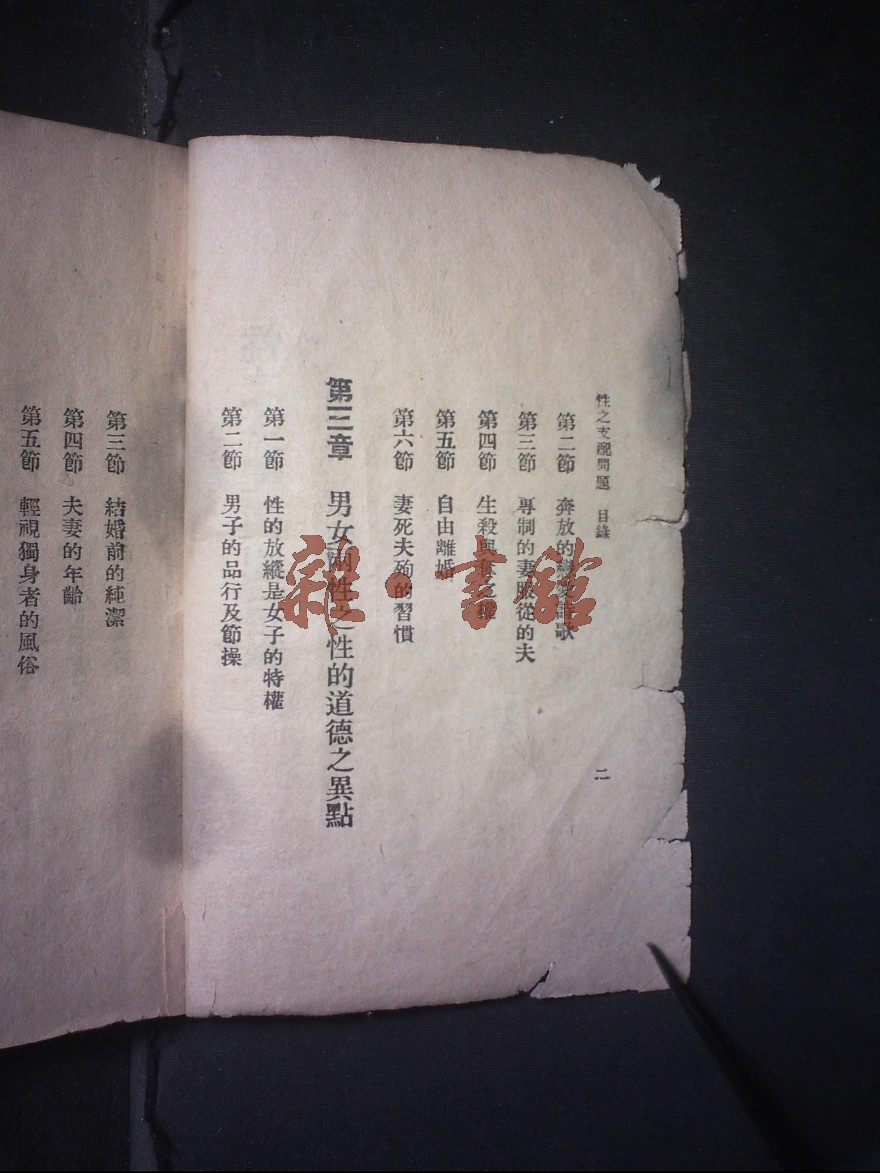 性之支配問題　目錄
二
第二節　奔放的戀愛詩歌
第三節　專制的妻服從的夫
第四節　生殺與奪之權
第五節　自由離婚
第六節　妻死夫殉的習慣
第三章　男女兩性之性的道德之異點
第一節　性的放縱是女子的特權
第二節　男子的品行及節操
第三節　結婚前的純潔
第四節　夫妻的年齡
第五節　輕視獨身者的風俗
雜·書館